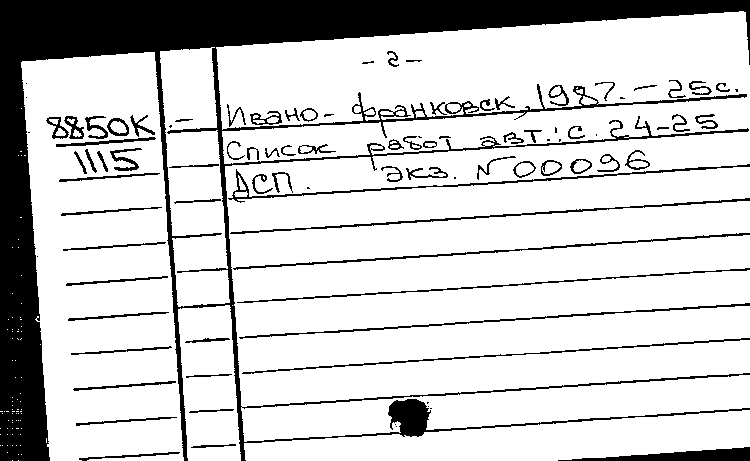 - 2 -
8850К .- Ивано-франковск, 1987. - 25 с.
1115 Список работ авт.: с. 24-25
ДСП. экз. N 00096